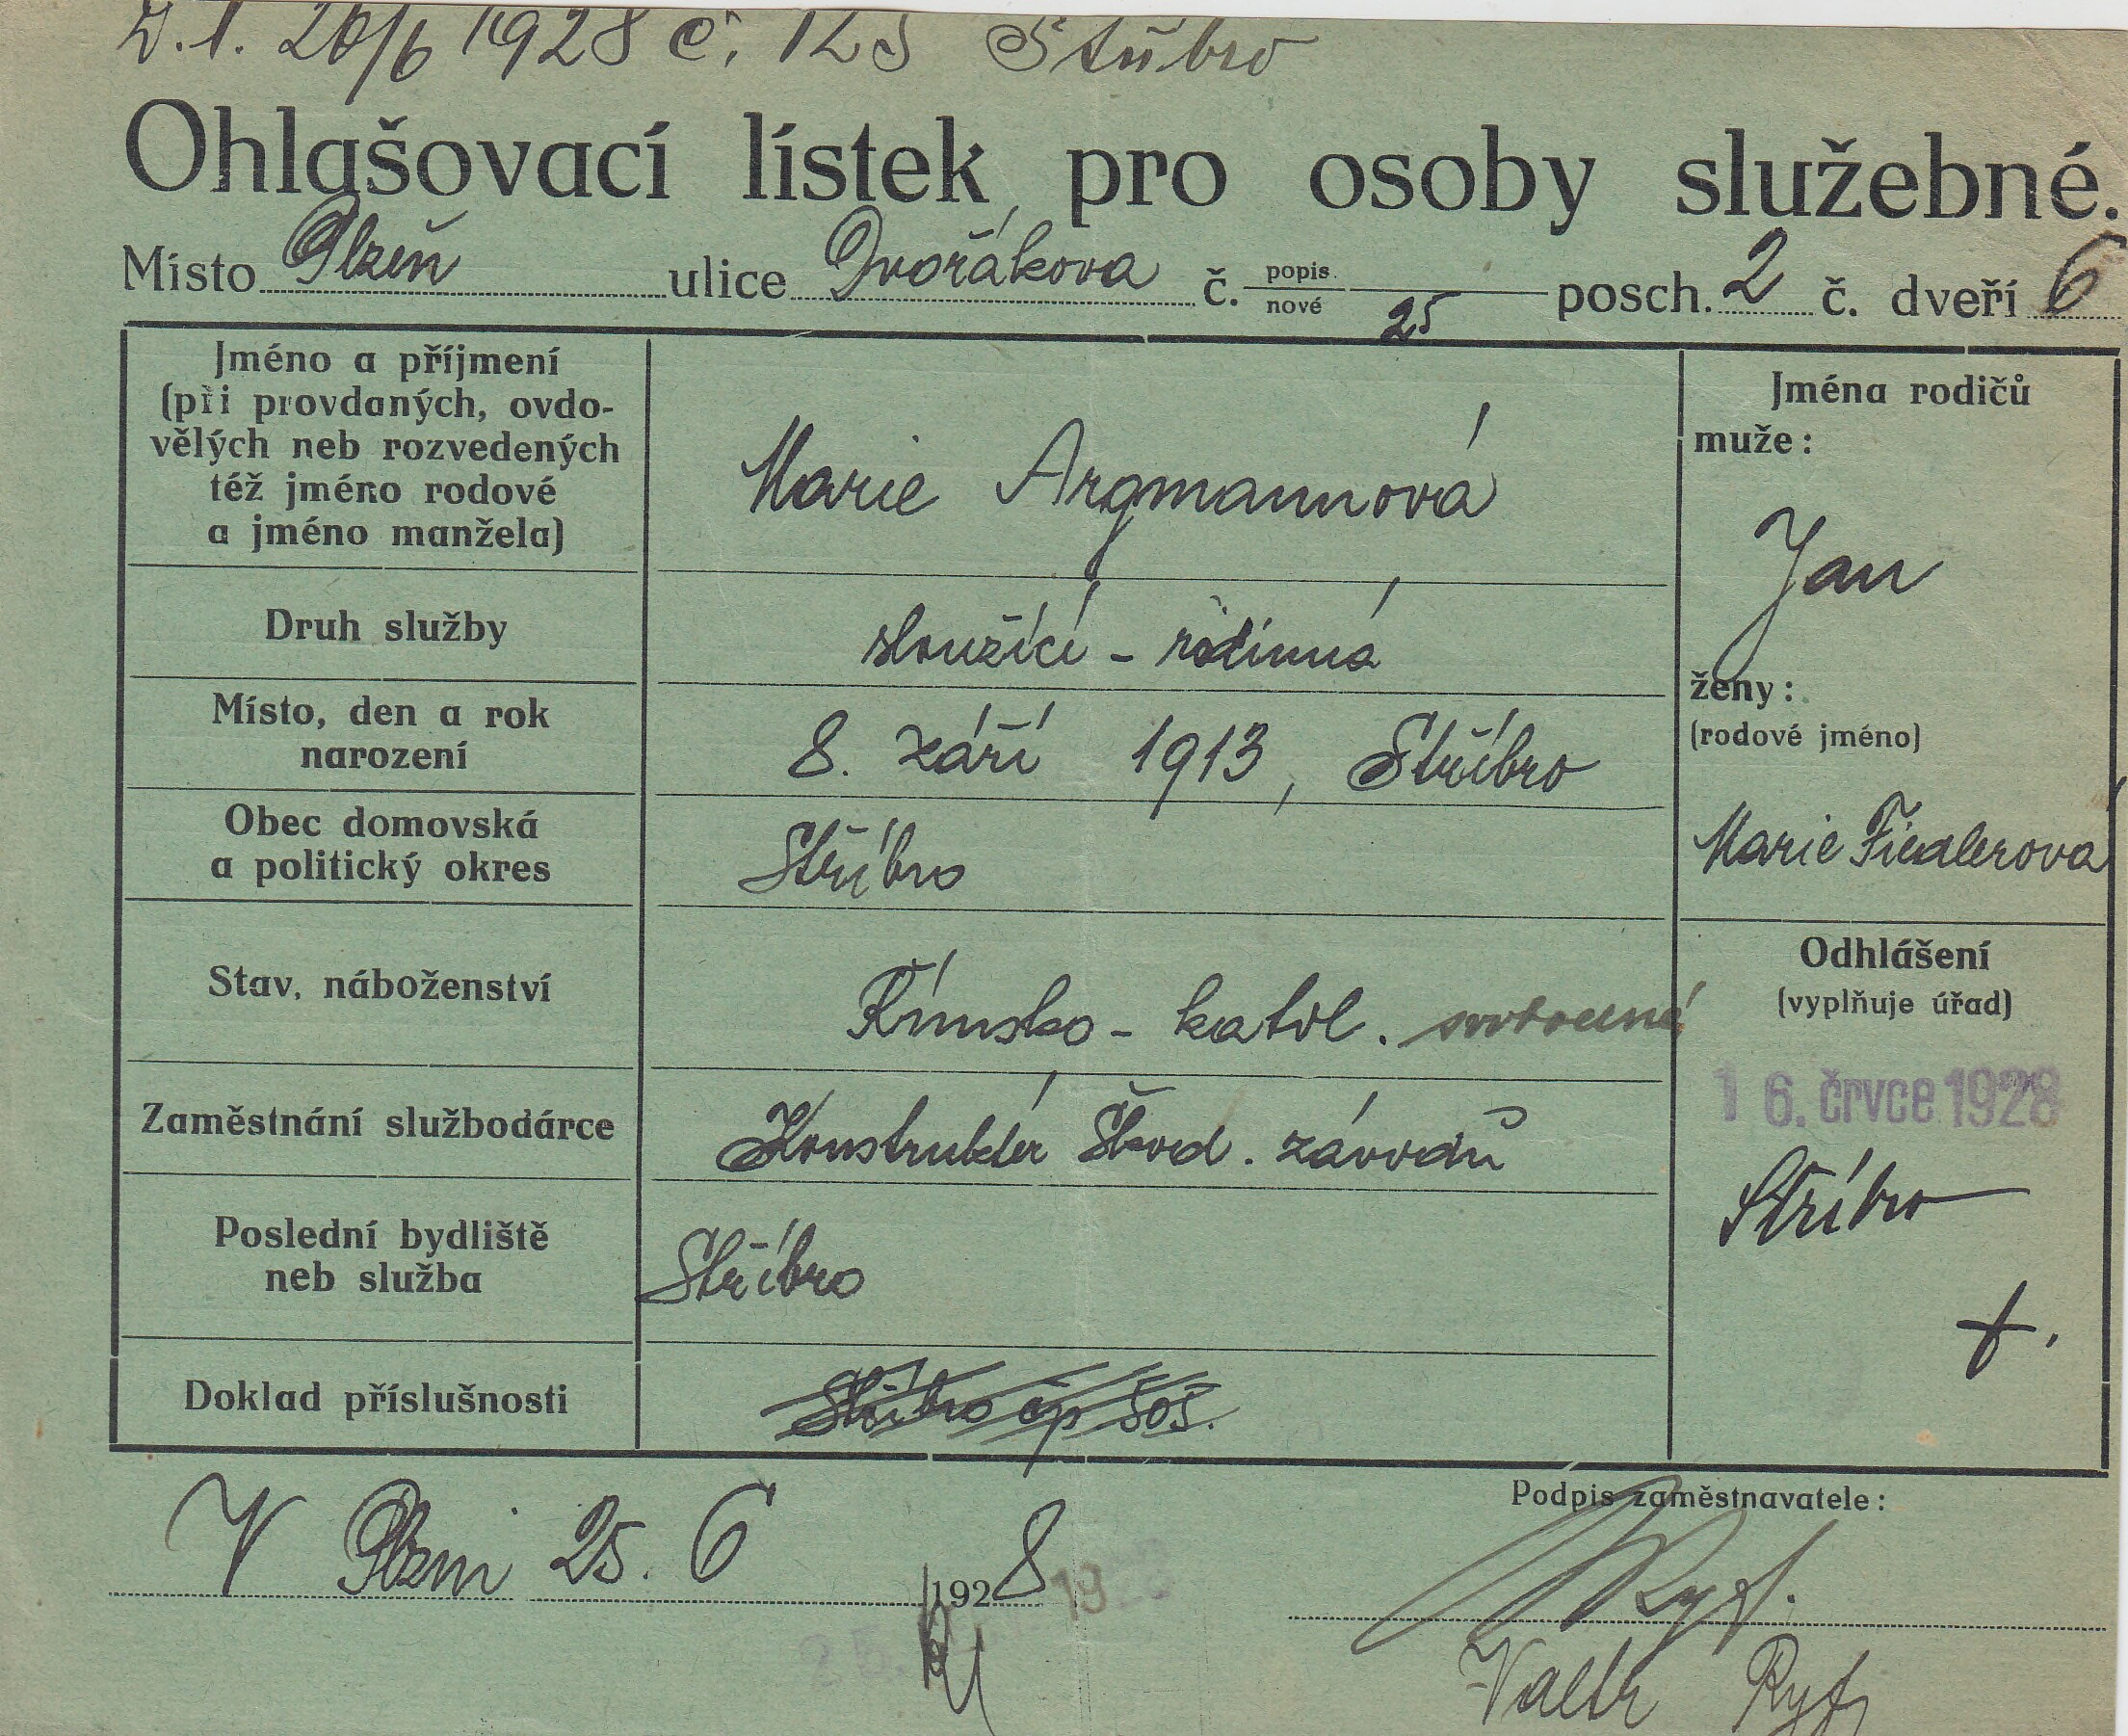 26/6 1928 č. 125 Stříbro
Ohlašovací lístek pro osoby služebné.
Místo Plzeň ulice Dvořákova č. popis. nové 25 posch. 2 č. dveří 6
Jméno a příjmení
(při provdaných, ovdo-
vělých neb rozvedených
též jméno rodové
a jméno manžela)
Marie Argmannová
Druh služby
sloužící - rodinná
Místo, den a rok
narození
8. září 1913, Stříbro
Obec domovská
a politický okres
Stříbro
Stav, náboženství
Římsko - katol. svobodná
Zaměstnání službodárce
Konstruktér Škod. závodů
Poslední bydliště
neb služba
Stříbro
Doklad příslušnosti
Stříbro čp
Jména rodičů
muže:
Jan
ženy:
(rodové jméno)
Marie Fiedlerová
Odhlášení
(vyplňuje úřad)
16. črvce 1928
Stříbro
V Plzni 25. 6 1928
Podpis zaměstnavatele: